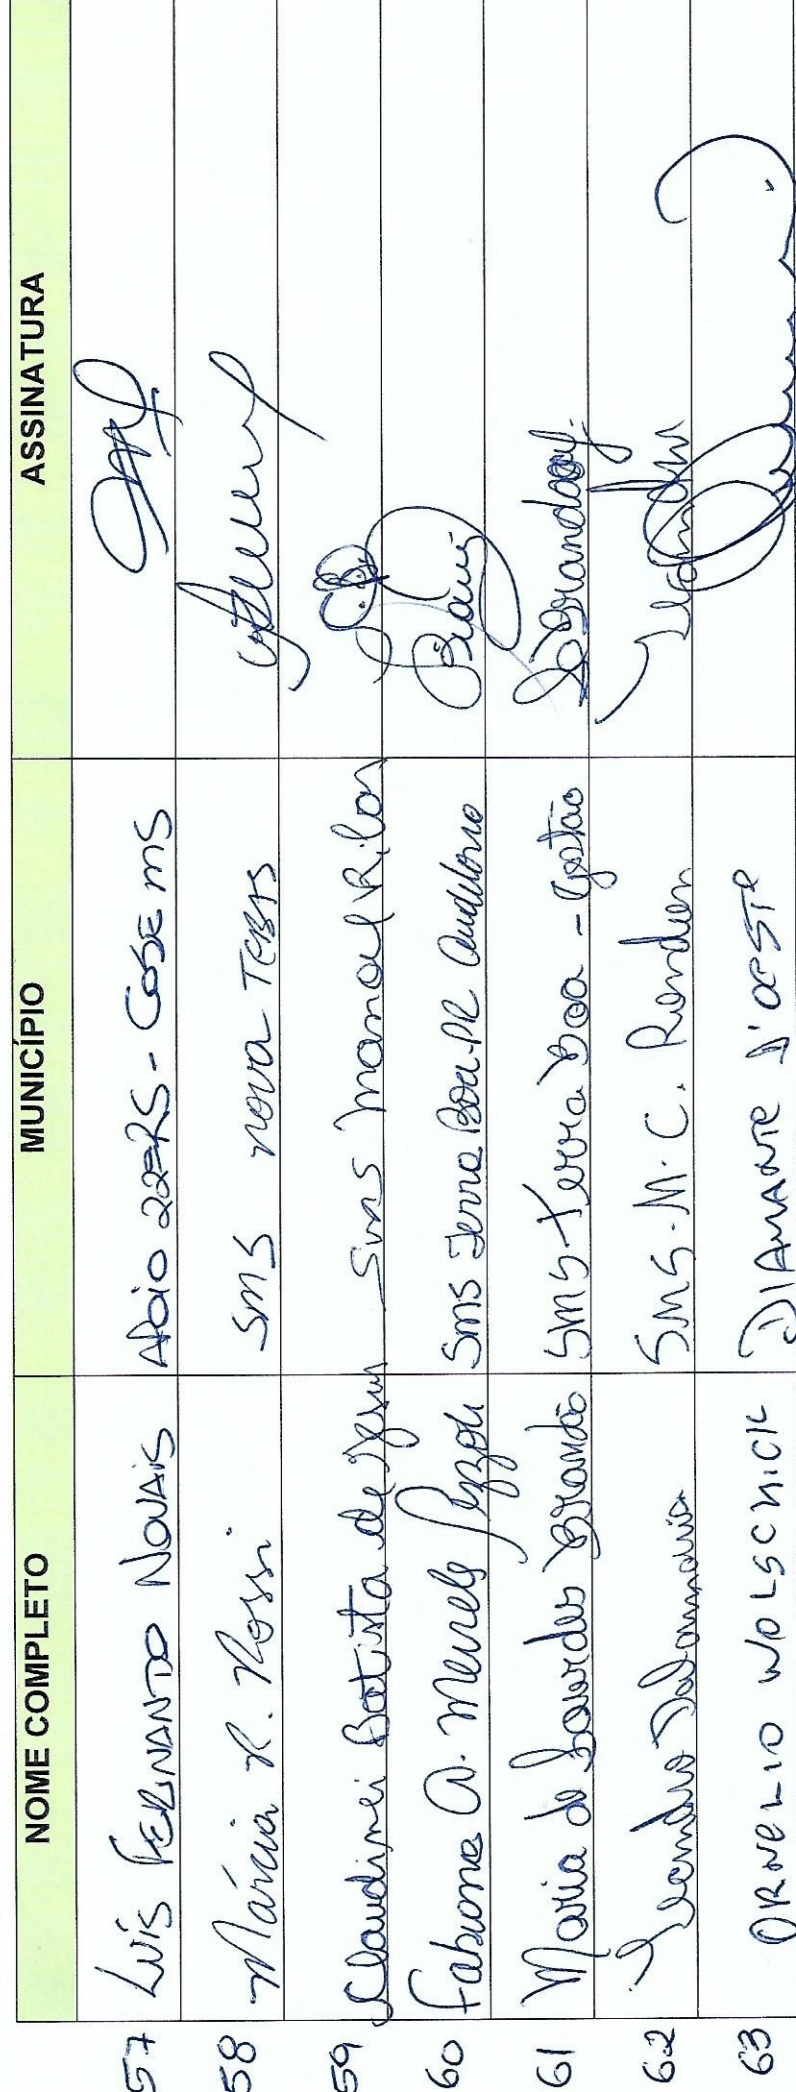 NOME COMPLETO MUNICÍPIO ASSINATURA
57 LUÍS FERNANDO NOVAIS APOIO 22ªRS - COSEMS
58 Márcia R. Rossi SMS nova TEBAS
59 Claudinei Batista de Jesus SMS Manoel Ribas
60 Fabiana A. Pezzoli SMS Terra Boa-PR
61 Maria de Lourdes Brandão SMS-Terra Boa - Gestão
62 Leandro SMS-M. C. Rondon
63 ORNELIO WOLSCHICK DIAMANTE D'OESTE